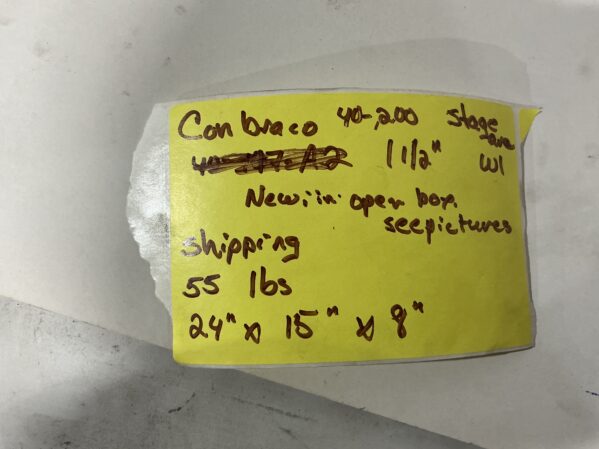 Conbraco 40-200 Stage
1 1/2" W1
New in open box.
see pictures
shipping
55 lbs
24" x 15" x 8"